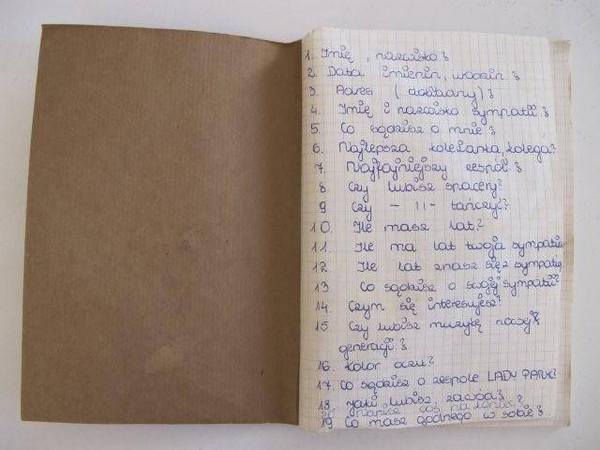 1. Imię, nazwisko?
2. Data imienin, urodzin?
3 Adres (dokładny)?
4. Imię i nazwisko sympatii?
5. Co sądzisz o mnie?
6. Najlepsza koleżanka, kolega?
7. Najfajniejszy zespół?
8 Czy lubisz spacery?
9 Czy - 11 - tańczyć?
10. Ile masz lat?
11. Ile ma lat twoja sympatia
12 Ile lat znasz się z sympatią
13 Co sądzisz o swojej sympatii?
14. Czym się interesujesz?
15 Czy lubisz muzykę nowej
generacji?
16. Kolor oczu?
17. Co sądzisz o zespole LADY PANK?
18. Jaki lubisz zawód?
napisz coś na koniec
19 Co masz godnego w sobie?